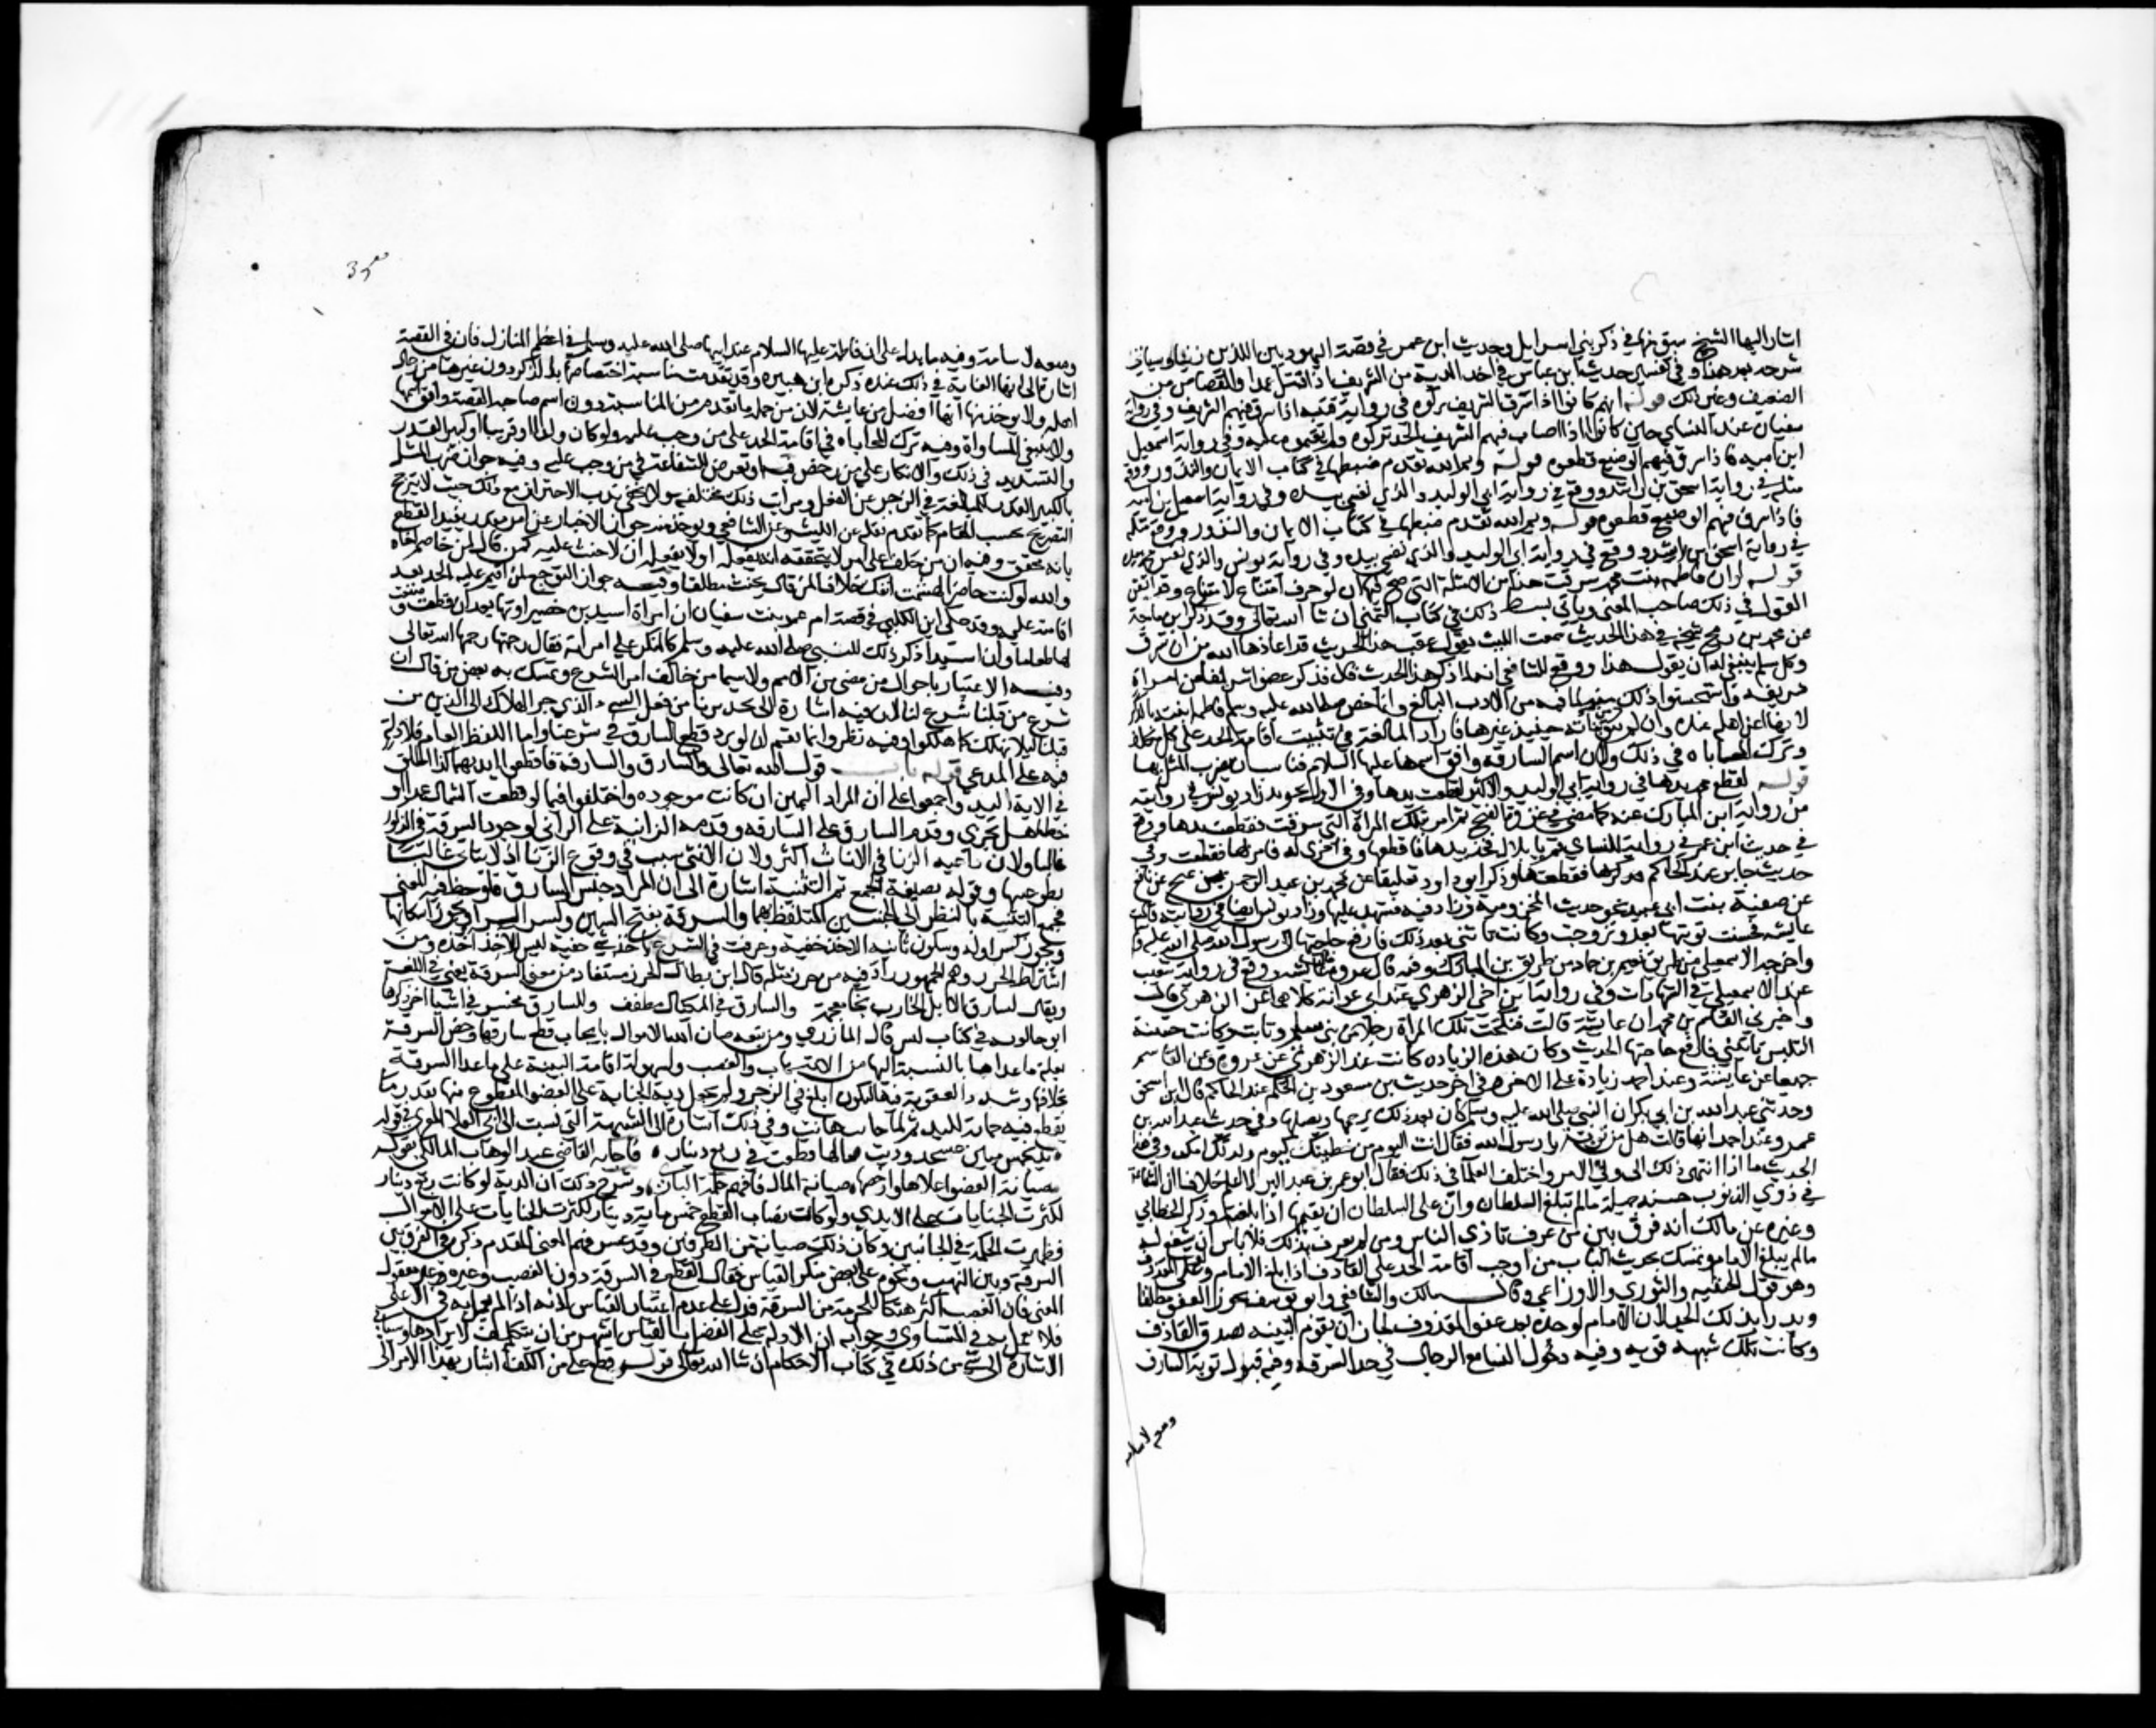 اشار اليها الشيخ سبق منها في ذكر بني اسرايل وحديث ابن عمر في قصة اليهوديين اللذين زنيا وسياتي
شرحه بعد هذا وفي تفسير حديث ابن عباس في اخذ الدية من الشريف اذا قتل عمدا والقصاص من
الضعيف وغير ذلك قوله انهم كانوا اذا سرق الشريف تركوه في رواية قتيبة اذا سرق فيهم الشريف وفي رواية
سفيان عند النساي حين كانوا اذا اصاب فيهم الشريف الحد تركوه ولم يقيموه عليه وفي رواية اسمعيل
ابن امية فاذا سرق فيهم الوضيع قطعوه قوله وايم الله تقدم ضبطها في كتاب الايمان والنذور ووقع
مثله في رواية اسحق بن راشد ووقع في رواية ابي الوليد والذي نفسي بيده وفي رواية اسمعيل بن امية
فاذا سرق فيهم الوضيع قطعوه قوله وايم الله تقدم ضبطها في كتاب الايمان والنذور ووقع مثله
في رواية اسحق بن راشد ووقع في رواية ابي الوليد والذي نفسي بيده وفي رواية يونس والذي نفس
قوله لو ان فاطمة بنت محمد سرقت هذا من الامثلة التي صح فيها ان لو حرف امتناع لامتناع وقد اتقن
القول في ذلك صاحب المغني وياتي بسط ذلك في كتاب التمني ان شا الله تعالى وقد ذكر ابن ماجة
عن محمد بن رمح شيخه في هذا الحديث سمعت الليث يقول عقب هذا الحديث قد اعاذها الله من ان تسرق
وكل مسلم ينبغي له ان يقول هذا ووقع للشافعي انه لما ذكر هذا الحديث قال فذكر عضوا شريفا من امراة
شريفة واستحسنوا ذلك منه لما فيه من الادب البالغ وانما خص صلى الله عليه وسلم فاطمة ابنته بالذكر
لانها اعز اهله عنده وان لم يبق من بناته حينيذ غيرها فاراد المبالغة في تثبيت اقامة الحد على كل مكلف
وترك المحاباه في ذلك ولان اسم السارقة وافق اسمها عليها السلام فناسب ان يضرب المثل بها
قوله لقطع محمد يدها في رواية ابي الوليد والاكثر لقطعت يدها وفي الاول تجوز زاد يونس في روايته
من رواية ابن المبارك عنه كما مضى في غزوة الفتح ثم امر بتلك المراة التي سرقت فقطعت يدها ووقع
في حديث ابن عمر في رواية للنساي قم يا بلال فخذ يدها فاقطعها وفي اخرى له فامر بها فقطعت وفي
حديث جابر عند الحاكم فقطعها وذكر ابو داود تعليقا عن محمد بن عبد الرحمن بن غنج عن نافع
عن صفية بنت ابي عبيد نحو حديث المخزومية وزاد فيه فشهد عليها وزاد يونس ايضا في روايته قالت
عايشة فحسنت توبتها بعد وتزوجت وكانت تاتيني بعد ذلك فارفع حاجتها الى رسول الله صلى الله عليه وسلم
واخرجه الاسمعيلي من طريق نعيم بن حماد من طريق ابن المبارك وفيه قال عروة قالت عايشة ووقع في رواية شعيب
عند الاسمعيلي في الشهادات وفي رواية ابن اخي الزهري عند ابي عوانة كلاهما عن الزهري قال
واخبرني القاسم بن محمد ان عايشة قالت فنكحت تلك المراة رجلا من بني سليم وتابت وكانت حسنة
التلبس تاتيني فارفع حاجتها الحديث وكان هذه الزيادة كانت عند الزهري عن عروة وعن القاسم
جميعا عن عايشة وعند احمد زيادة على الاخر وفي اخر حديث بن مسعود بن الحكم عند الحاكم قال ابن اسحق
وحدثني عبد الله بن ابي بكر ان النبي صلى الله عليه وسلم كان بعد ذلك يرحمها ويصلها وفي حديث عبد الله بن
عمرو عند احمد انها قالت هل لي من توبة يا رسول الله فقال انت اليوم من خطيتك كيوم ولدتك امك وفي هذا
الحديث ما اذا انتهى ذلك الى ولي الامر واختلف العلما في ذلك فقال ابو عمر بن عبد البر لا اعلم خلافا ان الشفاعة
في ذوي الذنوب حسنة جميلة ما لم تبلغ السلطان وان على السلطان ان يقيمها اذا بلغته وذكر الخطابي
وغيره عن مالك انه فرق بين من عرف باذى الناس ومن لم يعرف بذلك فلا باس ان يشفع له
ما لم يبلغ الامام وتمسك بحديث الباب من اوجب اقامة الحد على القاذف اذا بلغ الامام ولو عفى المقذوف
وهو قول الحنفية والثوري والاوزاعي وقال مالك والشافعي وابو يوسف يجوز العفو مطلقا
ويدرا بذلك الحد لان الامام لو وجده بعد عفو المقذوف لجاز ان يقوم البينة بصدق القاذف
وكانت تلك شبهة قوية وفيه دخول النسا مع الرجال في حد السرقة وفيه قبول توبة السارق
ومنقبة لاسامة
ومنقبة لاسامة وفيه ما يدل على ان فاطمة عليها السلام عند ابيها صلى الله عليه وسلم في اعظم المنازل فان في القصة
اشارة الى انها الغاية في ذلك عنده ذكره ابن هبيرة وقد تقدمت مناسبة اختصاصها بالذكر دون غيرها من رجال
اهله ولا يوخذ منها انها افضل من عايشة لان من جملة ما تقدم من المناسبة دون اسم صاحبة القصة وافق اسمها
ولا ينبغي المساواة وفيه ترك المحاباه في اقامة الحد على من وجب عليه ولو كان ولدا او قريبا او كبير القدر
والتشديد في ذلك والانكار على من رخص فيه او تعرض للشفاعة في من وجب عليه وفيه جواز ضرب المثل
بالكبير القدر للمبالغة في الزجر عن الفعل ومراتب ذلك مختلفة ولا يخفى ندب الاحتراز من ذلك حيث لا يترجح
التصريح بحسب المقام كما تقدم نقله عن الليث والشافعي ويوخذ منه جواز الاخبار عن امر مقدر يفيد القطع
بانه محقق وفيه ان من حلف على امر لا يتحققه انه يفعله او لا يفعله ان لا حنث عليه كمن قال لمن خاصم اخاه
والله لو كنت حاضرا لهشمت انفك خلافا لمن قال يحنث مطلقا وفيه جواز التوجع لمن اقيم عليه الحد بعد
اقامته عليه وقد حكى ابن الكلبي في قصة ام عمرو بنت سفيان ان امراة اسيد بن حضير اوتها بعد ان قطعت وصنعت
لها طعاما وان اسيدا ذكر ذلك للنبي صلى الله عليه وسلم كالمنكر على امراته فقال رحمتها رحمها الله تعالى
وفيه الاعتبار باحوال من مضى من الامم ولا سيما من خالف امر الشرع وتمسك به بعض من قال ان
شرع من قبلنا شرع لنا لان فيه اشارة الى تحذير من فعل الشيء الذي جر الهلاك الى الذين من
قبلنا ليلا نهلك كما هلكوا وفيه نظر وانما يتم ان لو لم يرد قطع السارق في شرعنا واما اللفظ العام فلا دلالة
فيه على المدعي قوله باب قول الله تعالى والسارق والسارقة فاقطعوا ايديهما كذا اطلق
في الاية اليد واجمعوا على ان المراد اليمين ان كانت موجوده واختلفوا فيما لو قطعت الشمال عمدا او
خطا هل يجزي وقدم السارق على السارقة وقدمت الزانية على الزاني لوجود السرقة في الذكور
غالبا ولان داعية الزنا في الاناث اكثر ولان الانثى سبب في وقوع الزنا اذ لا يتاتى غالبا الا
بطوعها وقوله بصيغة الجمع ثم التثنية اشارة الى ان المراد جنس السارق فلوحظ فيه المعنى
فجمع والتثنية بالنظر الى الجنسين المتلفظ بهما والسرقة بفتح السين وكسر الرا ويجوز اسكانها
ويجوز كسر اوله وسكون ثانيه الاخذ خفية وعرفت في الشرع باخذ شي خفية ليس للاخذ اخذه ومن
اشترط الحرز وهم الجمهور زاد فيه من حرز مثله قال ابن بطال الحرز مستفاد من معنى السرقة يعني في اللغة
ويقال لسارق الابل الخارب بخا معجمة والسارق في المكيال مطفف وللسارق مخسر في اشيا اخر ذكرها
ابن خالويه في كتاب ليس قال المازري ومن تبعه صان الله الاموال بايجاب قطع سارقها وخص السرقة
لقلة ما عداها بالنسبة اليها من الانتهاب والغصب ولسهولة اقامة البينة على ما عدا السرقة
بخلافها وشدد العقوبة فيها ليكون ابلغ في الزجر ولم يجعل دية الجناية على العضو المقطوع منها بقدر ما
يقطع فيه حماية لليد ثم لما خانت هانت وفي ذلك اشارة الى الشبهة التي نسبت الى ابي العلا المعري في قوله
يد بخمس ميين عسجد وديت ما بالها قطعت في ربع دينار فاجابه القاضي عبد الوهاب المالكي بقوله
صيانة العضو اغلاها وارخصها صيانة المال فافهم حكمة الباري وشرح ذلك ان الدية لو كانت ربع دينار
لكثرت الجنايات على الايدي ولو كان نصاب القطع خمس ماية دينار لكثرت الجنايات على الاموال
فظهرت الحكمة في الجانبين وكان في ذلك صيانة من الطرفين وقد عسر فهم المعنى المقدم ذكره في الفرق بين
السرقة وبين النهب ونحوه على بعض منكر القياس فقال القطع في السرقة دون الغصب وغيره غير معقول
المعنى فان الغصب اكثر هتكا للحرمة من السرقة فدل على عدم اعتبار القياس لانه اذا لم يعمل به في الاعلى
فلا يعمل به في المساوي وجوابه ان الادلة على العمل بالقياس اشهر من ان يتكلف لايرادها وستاتي
الاشارة الى شي من ذلك في كتاب الاحكام ان شا الله تعالى قوله وقطع علي من الكف اشار بهذا الاثر الى